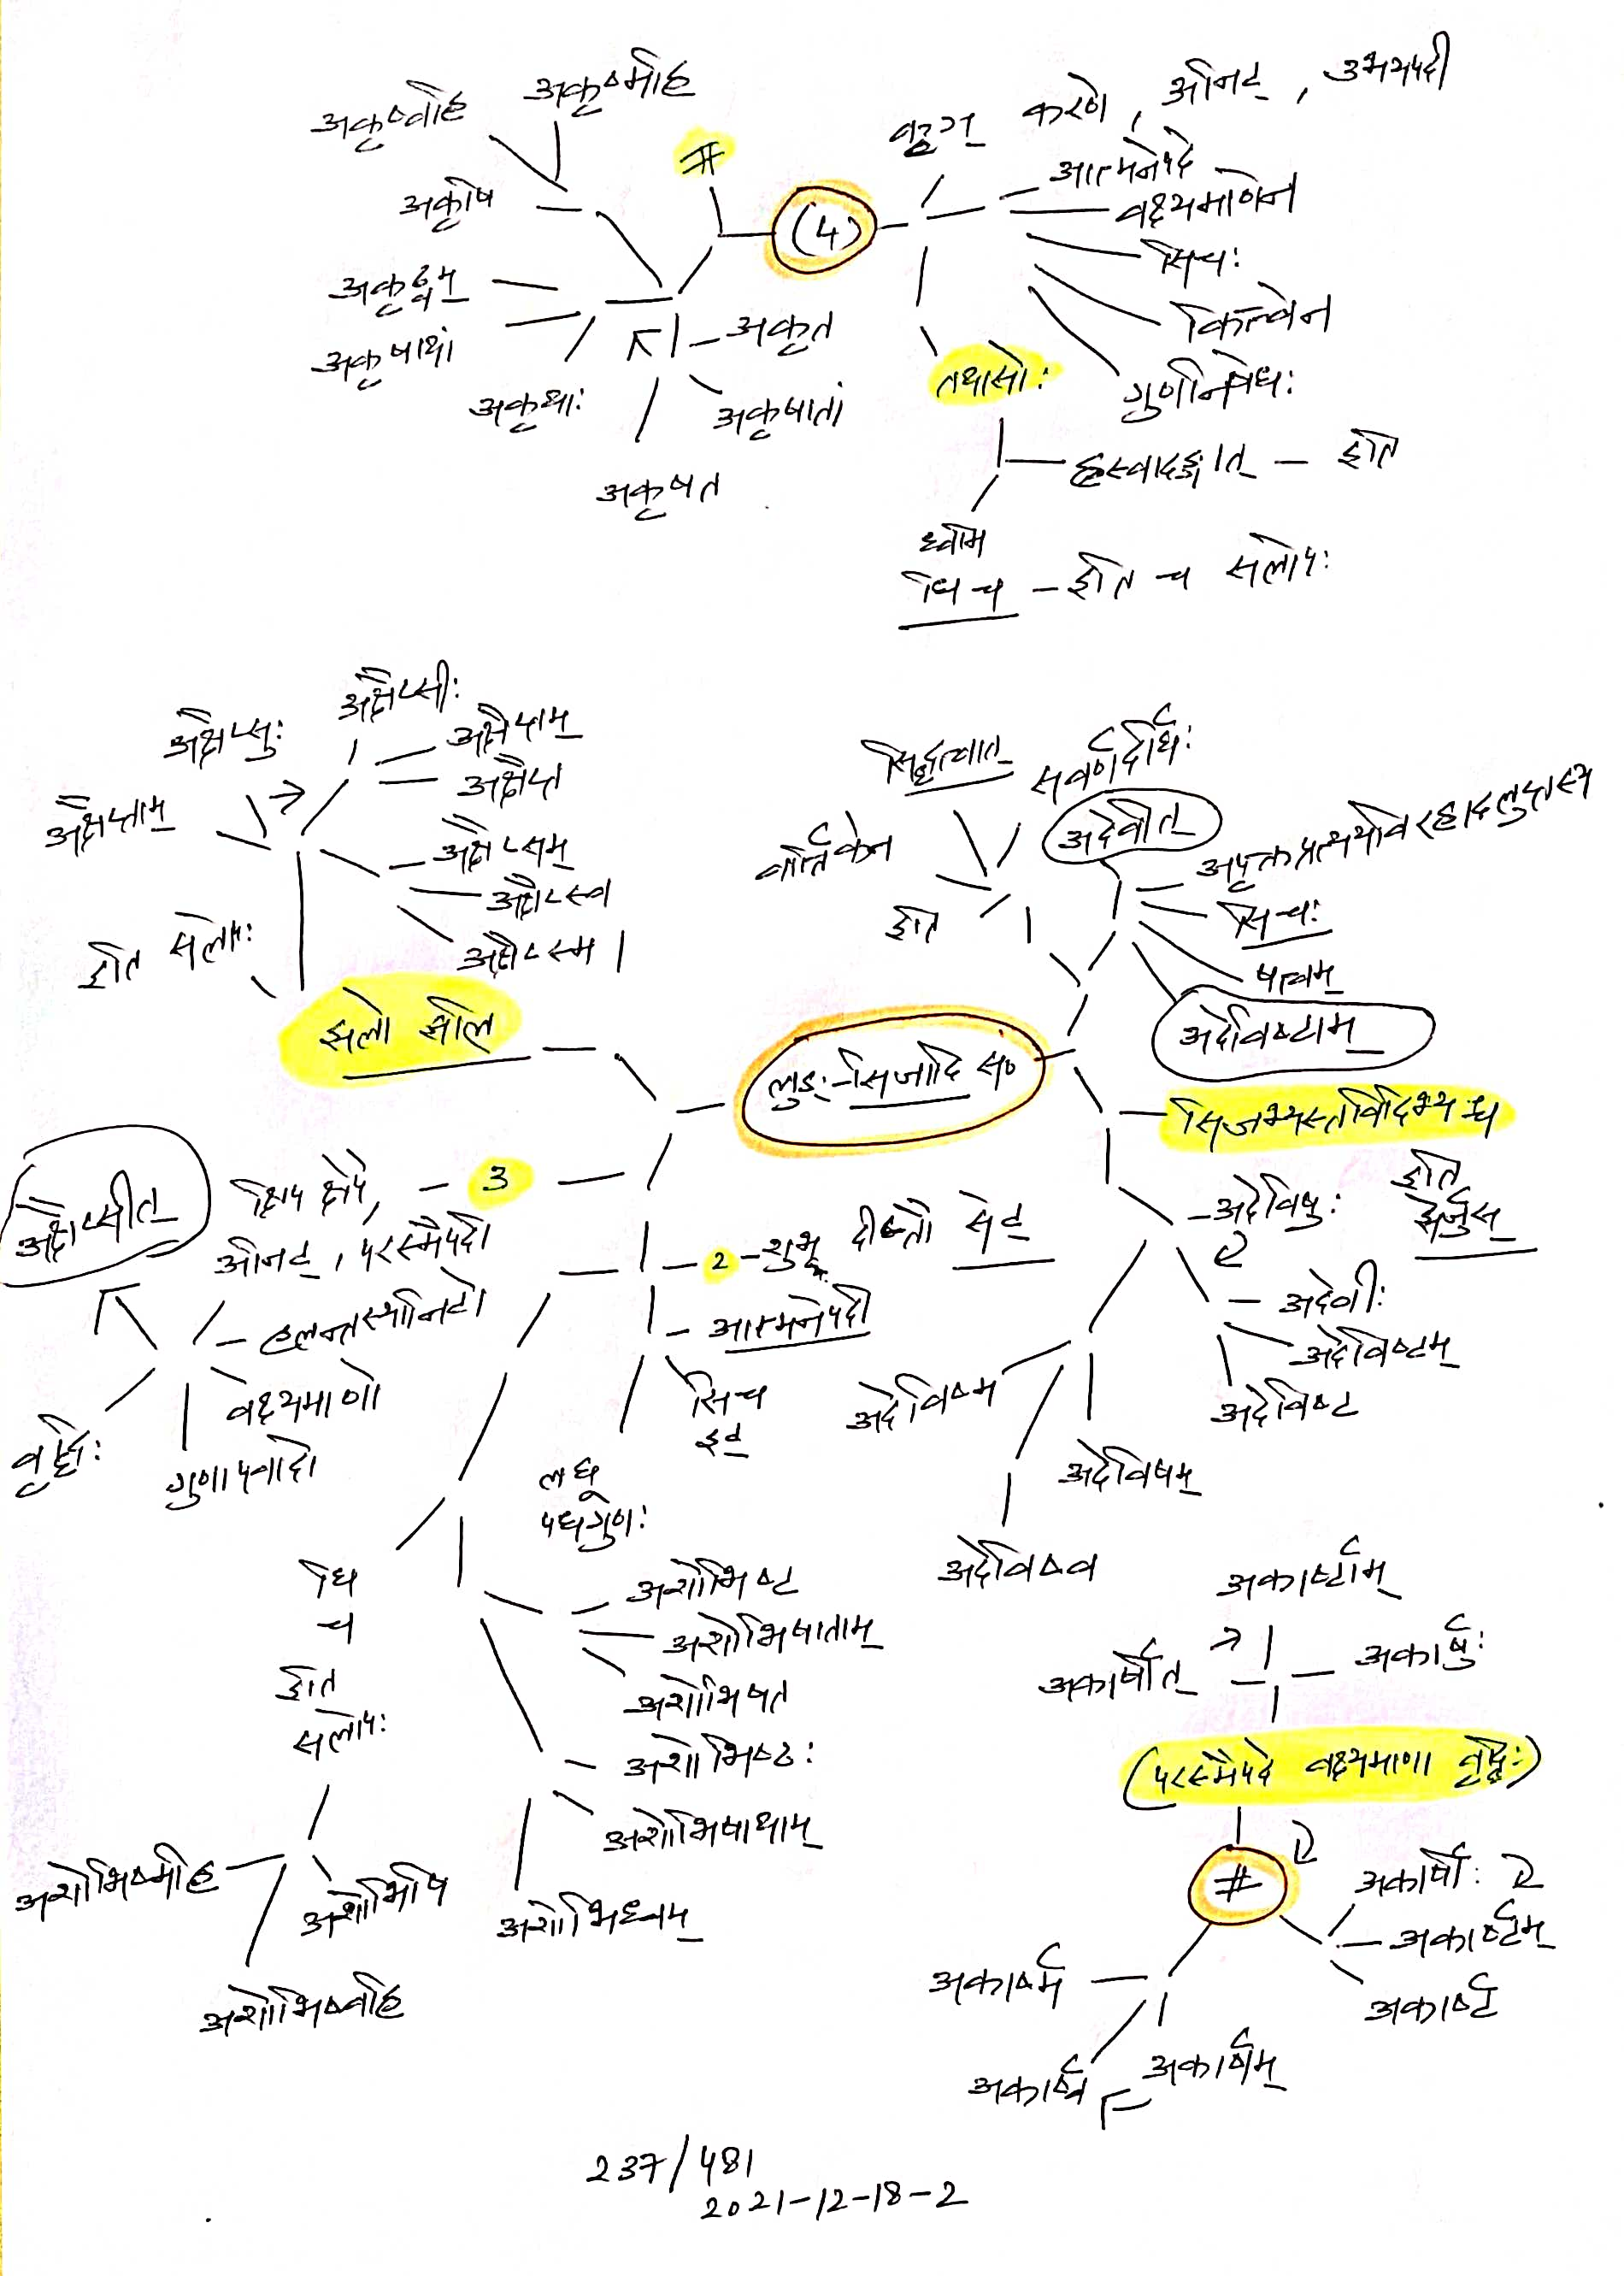 अकृष्वहि
अकृष्महि
#
कृञ् करणे, अनिट्, उभयपदी
आत्मनेपदे
वक्ष्यमाणेन
अकृषि
(4)
सिचः
कित्वेन
गुणनिषेधः
अकृढ्वम्
अकृषाथां
अकृथाः
अकृत
अकृषातां
अकृषत
तथासोः
ह्रस्वादङ्गात् - इति
ध्वमि
धि च - इति च सलोपः
अक्षैप्सीः
अक्षैप्सुः
अक्षैप्तम्
अक्षैप्त
अक्षैप्ताम्
अक्षैप्सम्
अक्षैप्स्व
अक्षैप्स्म।
इति सलोपः
झलो झलि
सिद्धत्वात्
सवर्णदीर्घः
वार्तिकेन
इति
अदेवीत्
अपृक्तप्रत्ययोव
सिचः
षत्वम्
अदेविष्टाम्
लुङः-सिजादि स०
सिजभ्यस्तविदिभ्यश्च
इति
झेर्जुस्
अदेविषुः
अदेवीः
अदेविष्टम्
अदेविष्ट
अदेविष्म
अदेविषम्
अदेविष्व
3
क्षिप क्षेपे,
अनिट्, परस्मैपदी
अक्षैप्सीत्
हलन्तस्यानिटो
वक्ष्यमाणो
गुणापवादो
वृद्धिः
2-शुभ दीप्तौ सेट्
आत्मनेपदी
सिच
इट्
लघू
पधगुणः
धि
च
इति
सलोपः
अशोभिष्ट
अशोभिषाताम्
अशोभिषत
अशोभिष्ठाः
अशोभिषाथाम्
अशोभिध्वम्
अशोभिषि
अशोभिष्महि
अशोभिष्वहि
अकार्ष्टाम्
अकार्षीत्
अकार्षुः
(परस्मैपदे वक्ष्यमाणा वृद्धिः)
#
अकार्षीः
अकार्ष्टम्
अकार्ष्ट
अकार्ष्म
अकार्ष्व
अकार्षम्
237/481
2021-12-18-2